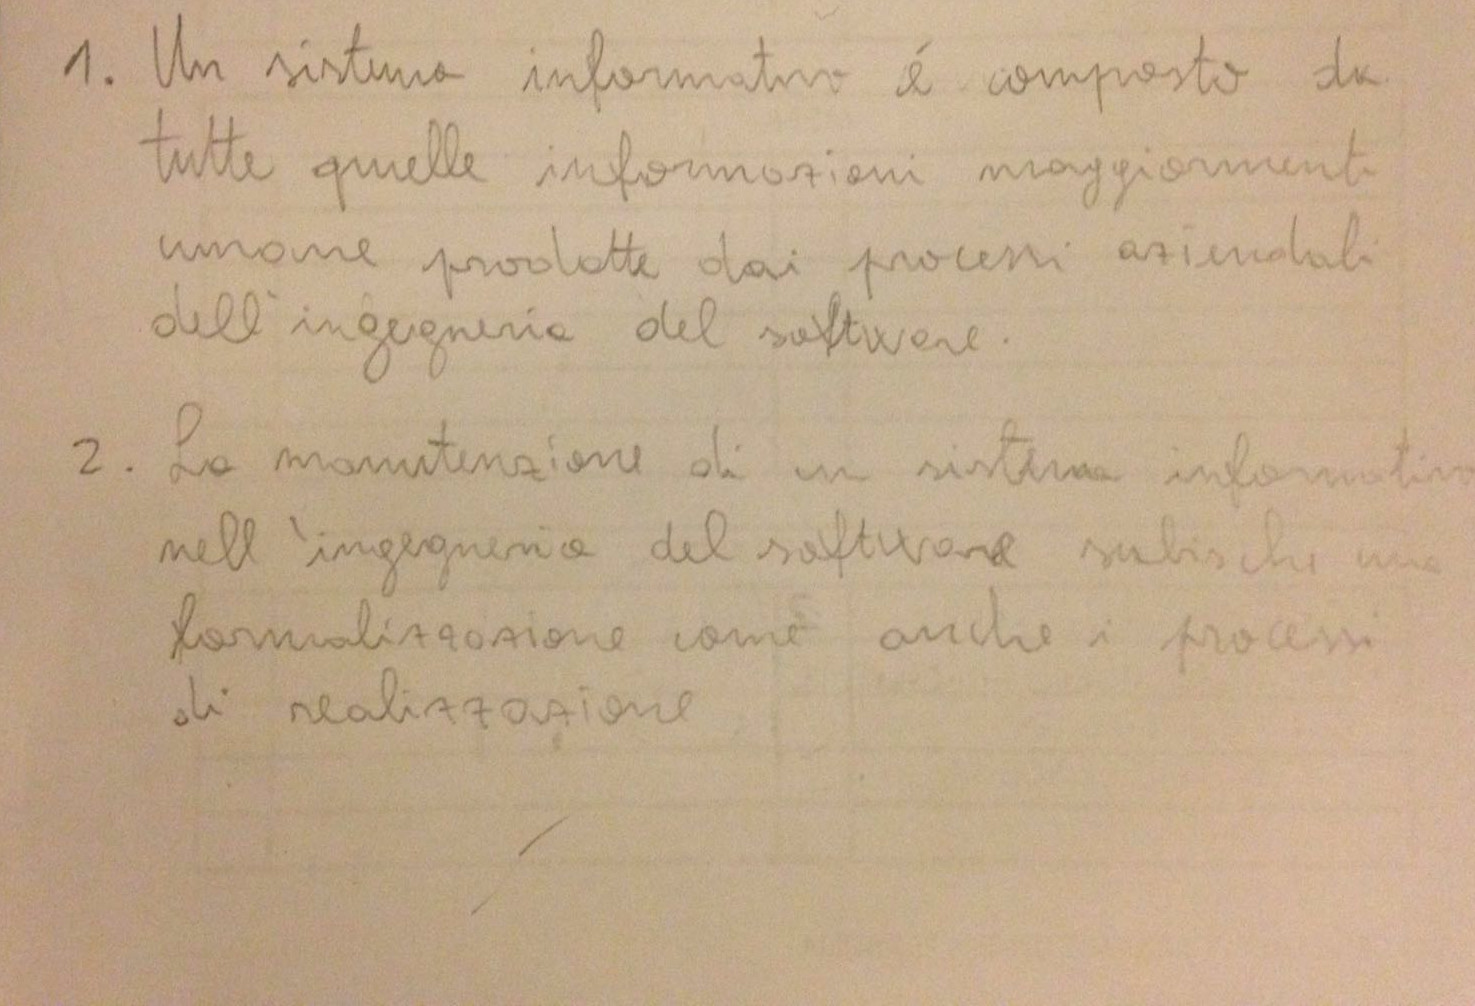 1. Un sistema informativo é composto da
tutte quelle informazioni maggiorment
umane prodotte dai processi aziendali
dell'ingegneria del software.
2. La manutenzione di un sistema informativo
nell'ingegneria del software subische una
formalizzazione come anche i processi
di realizzazione